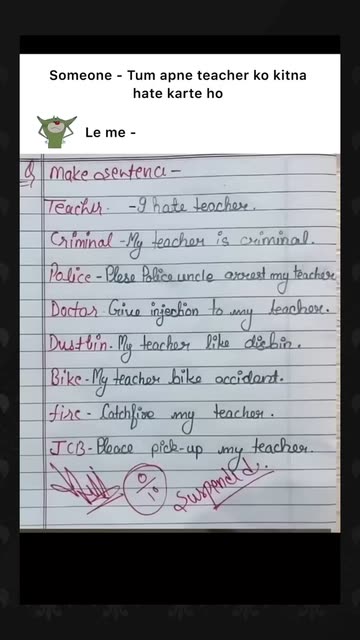 Someone - Tum apne teacher ko kitna
hate karte ho
Le me -
Q Make sentence -
Teacher. - I hate teacher.
Criminal - My teacher is criminal.
Police - Plese Police uncle arreet my teacher
Doctor. Give injection to my teacher.
Dustbin. My teacher like disbin.
Bike - My teacher bike accident.
fire - Catchfire my teacher.
JCB - Pleace pick-up my teacher.
0/10
Suspended.